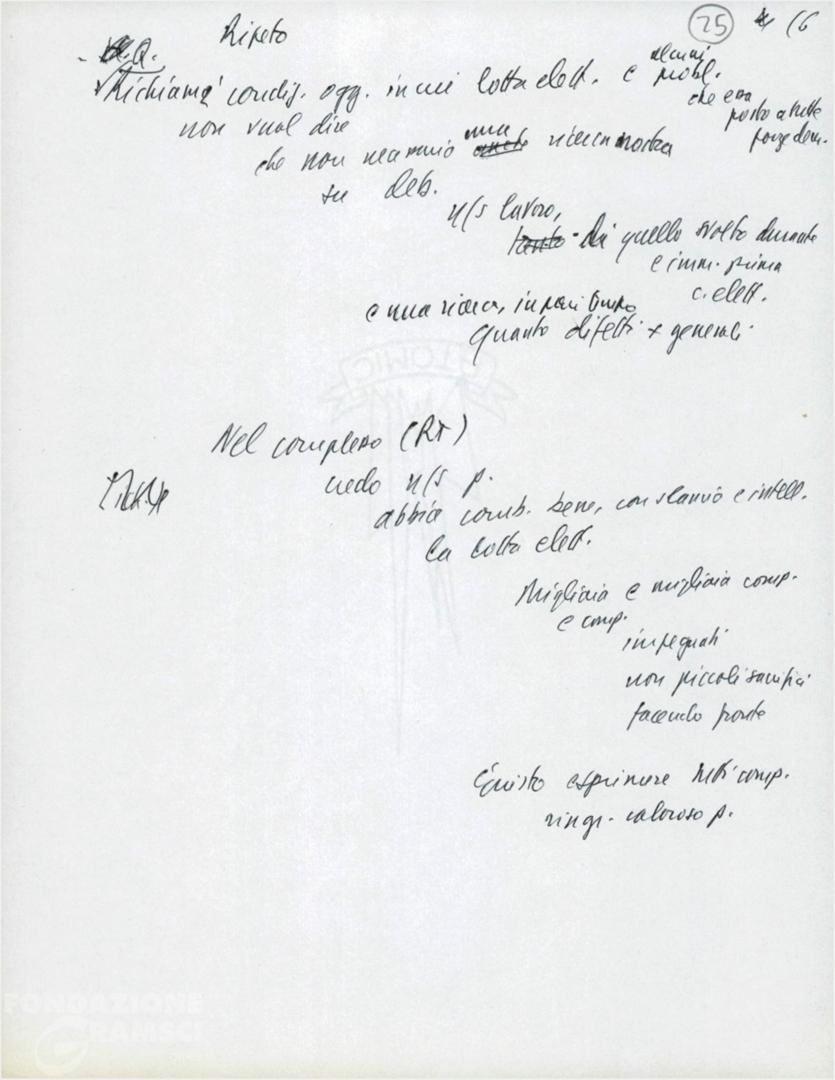 25 16
Ripeto
Q.
Richiamo condiz. ogg. in cui lotta elett. e alcuni probl.
che era
posto a tutte
forze dem.
non vuol dire
che non neanche una anche ricerca nostra
su deb.
n/s lavoro,
tanto - di quello svolto durante
e imm. prima
c. elett.
e una ricerca, in pari tempo
quanto difetti + generali.
Nel complesso (RT)
credo n/s p.
abbia comb. bene, con slancio e intell.
la lotta elett.
Migliaia e migliaia comp.
e comp.
impegnati
non piccoli sacrifici
facendo fronte
Giusto esprimere tutti comp.
ringr. caloroso p.
FONDAZIONE
GRAMSCI